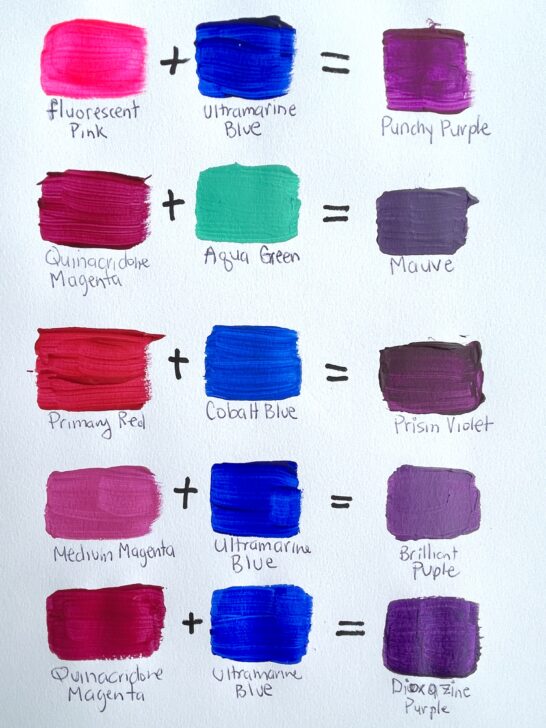 fluorescent Pink + Ultramarine Blue = Punchy Purple
Quinacridone Magenta + Aqua Green = Mauve
Primary Red + Cobalt Blue = Prisin Violet
Medium Magenta + Ultramarine Blue = Brilliant Puple
Quinacridone Magenta + Ultramarine Blue = Dioxazine Purple